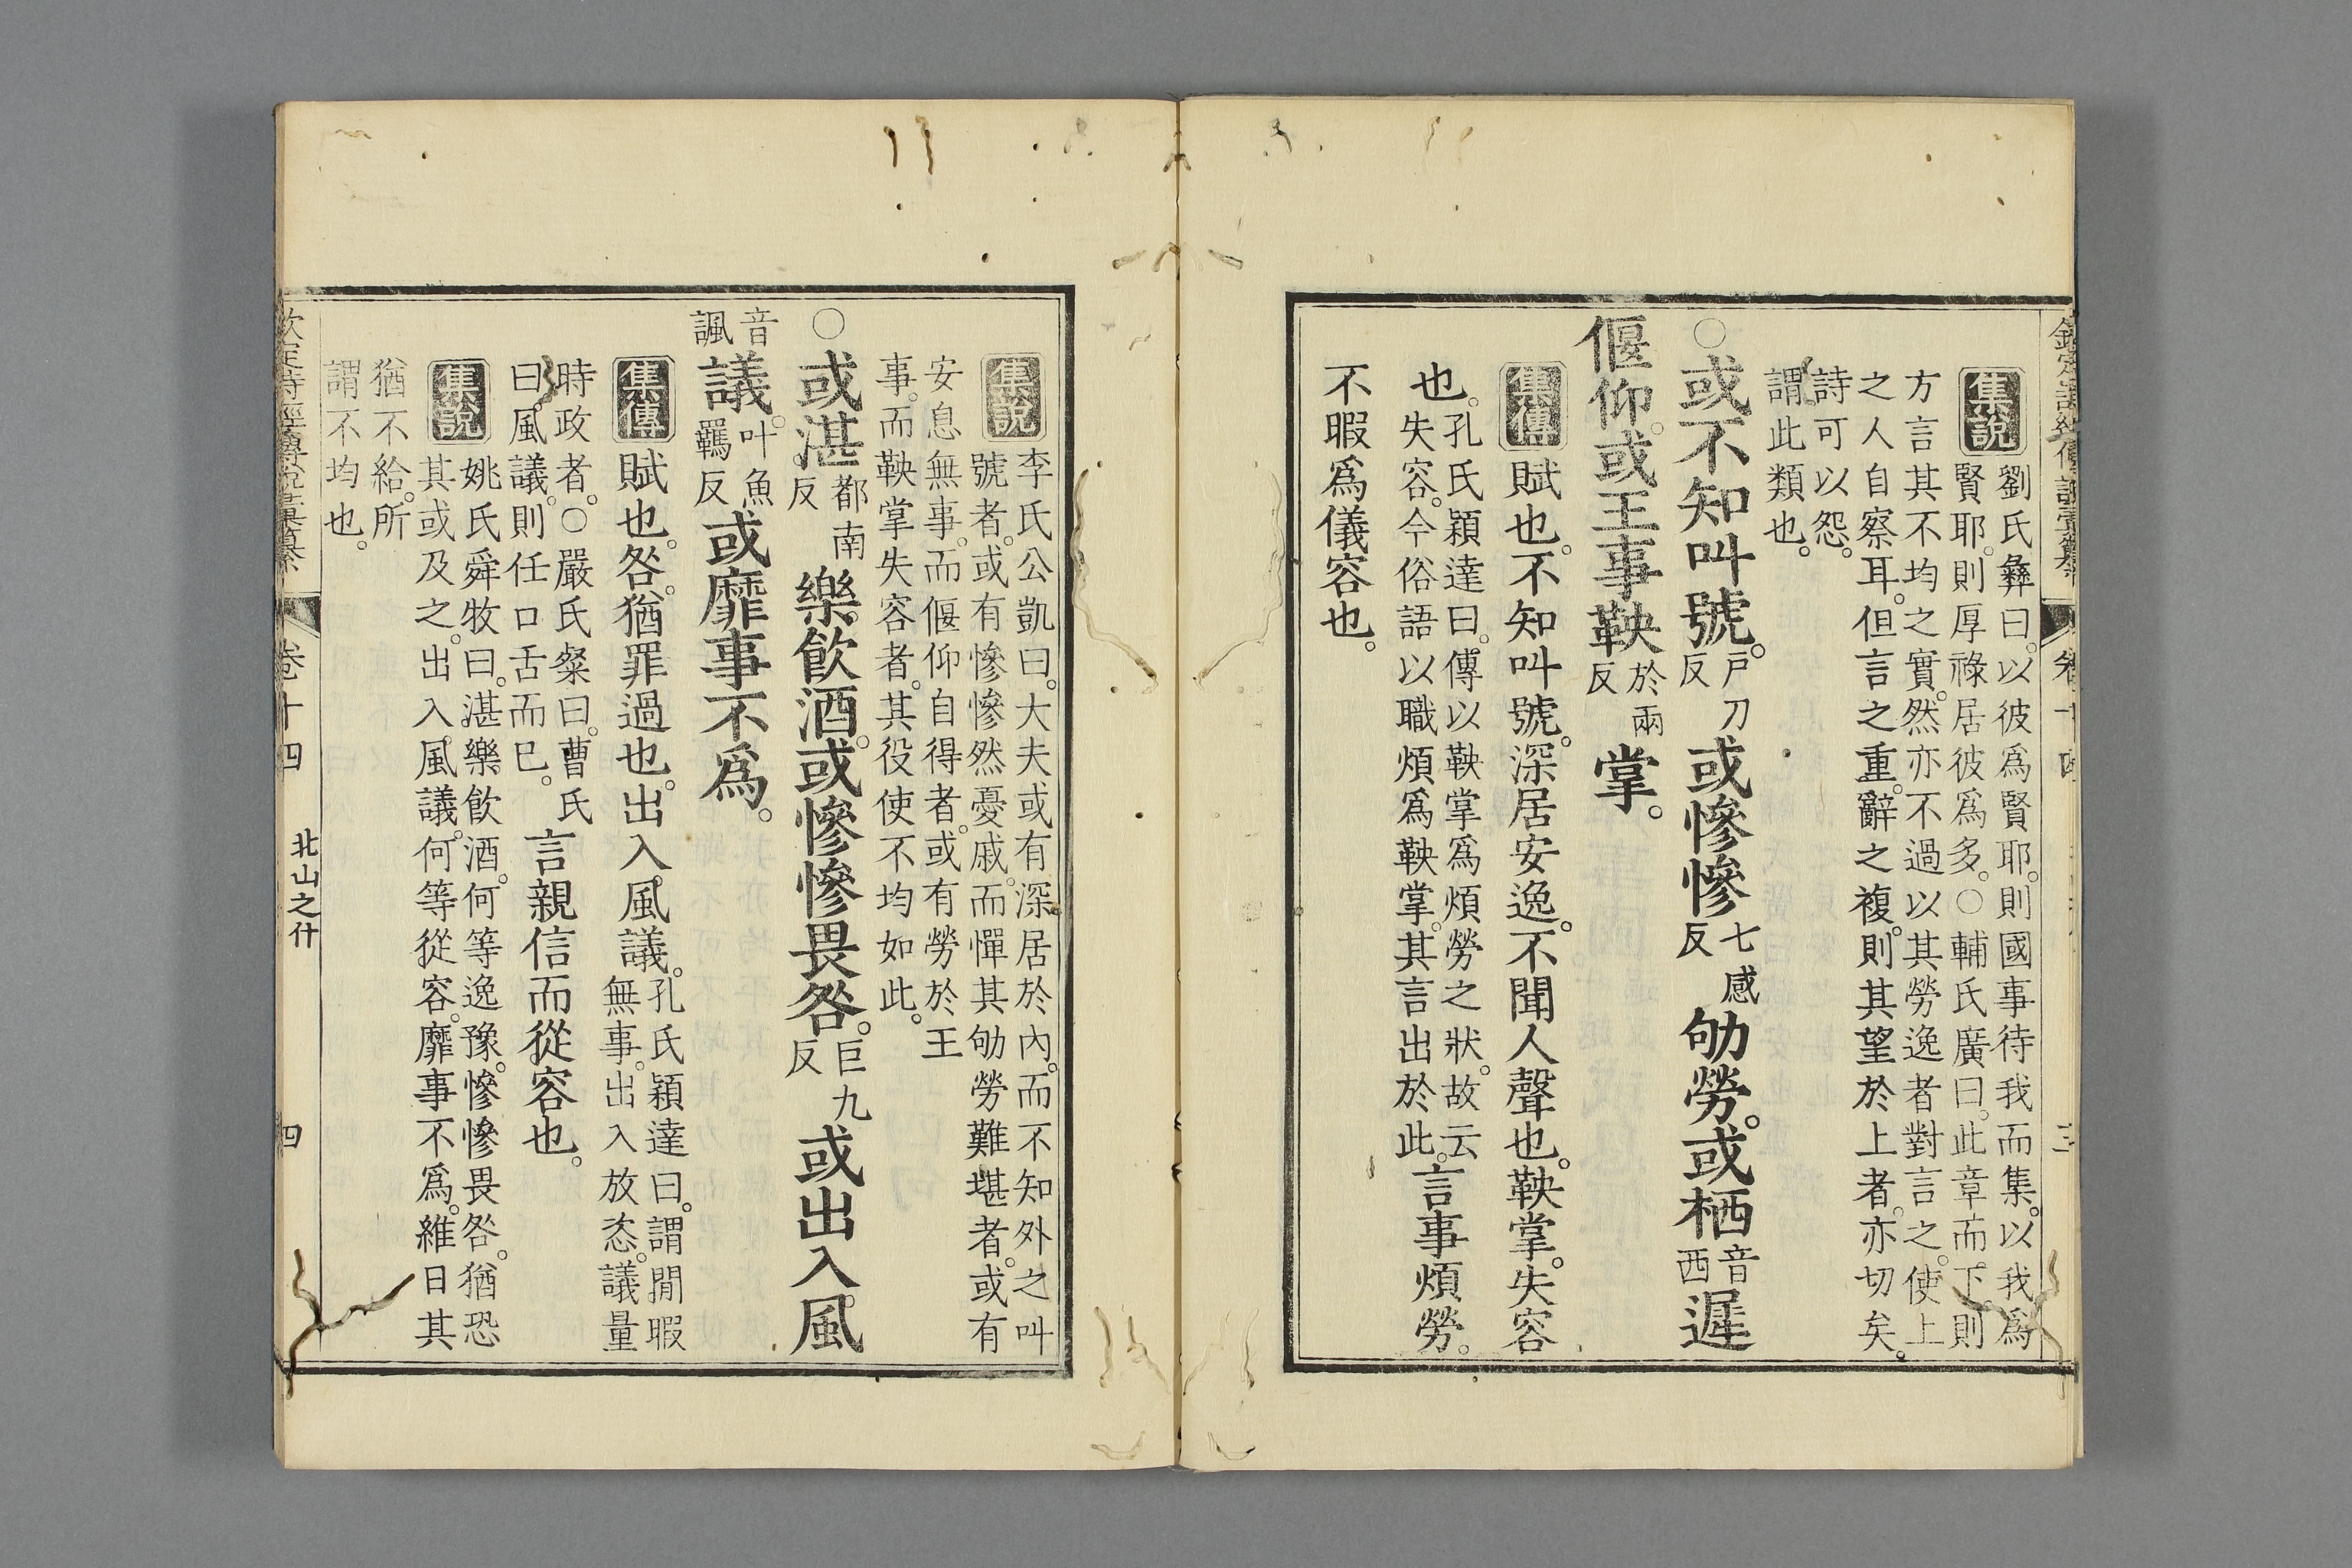 集說
劉氏彝曰以彼爲賢耶則國事待我而集以我爲
賢耶則厚祿居彼爲多○輔氏廣曰此章而下則
方言其不均之實然亦不過以其勞逸者對言之使上
之人自察耳但言之重辭之複則其望於上者亦切矣
詩可以怨
謂此類也
○或不知叫號戶刀反或慘慘七感反劬勞或栖音西遲
偃仰或王事鞅於兩反掌
集傳 賦也不知叫號深居安逸不聞人聲也鞅掌失容
也孔氏穎達曰傳以鞅掌爲煩勞之狀故云
失容今俗語以職煩爲鞅掌其言出於此言事煩勞
不暇爲儀容也
集說
李氏公凱曰大夫或有深居於內而不知外之叫
號者或有慘慘然憂戚而憚其劬勞難堪者或有
安息無事而偃仰自得者或有勞於王
事而鞅掌失容者其役使不均如此
○或湛都南反樂飲酒或慘慘畏咎巨九反或出入風
音諷議叶魚羈反或靡事不爲
集傳 賦也咎猶罪過也出入風議孔氏穎達曰謂閒暇
無事出入放恣議量
時政者○嚴氏粲曰曹氏
曰風議則任口舌而已言親信而從容也
集說
姚氏舜牧曰湛樂飲酒何等逸豫慘慘畏咎猶恐
其或及之出入風議何等從容靡事不爲維日其
猶不給所
謂不均也
卷十四
北山之什
四